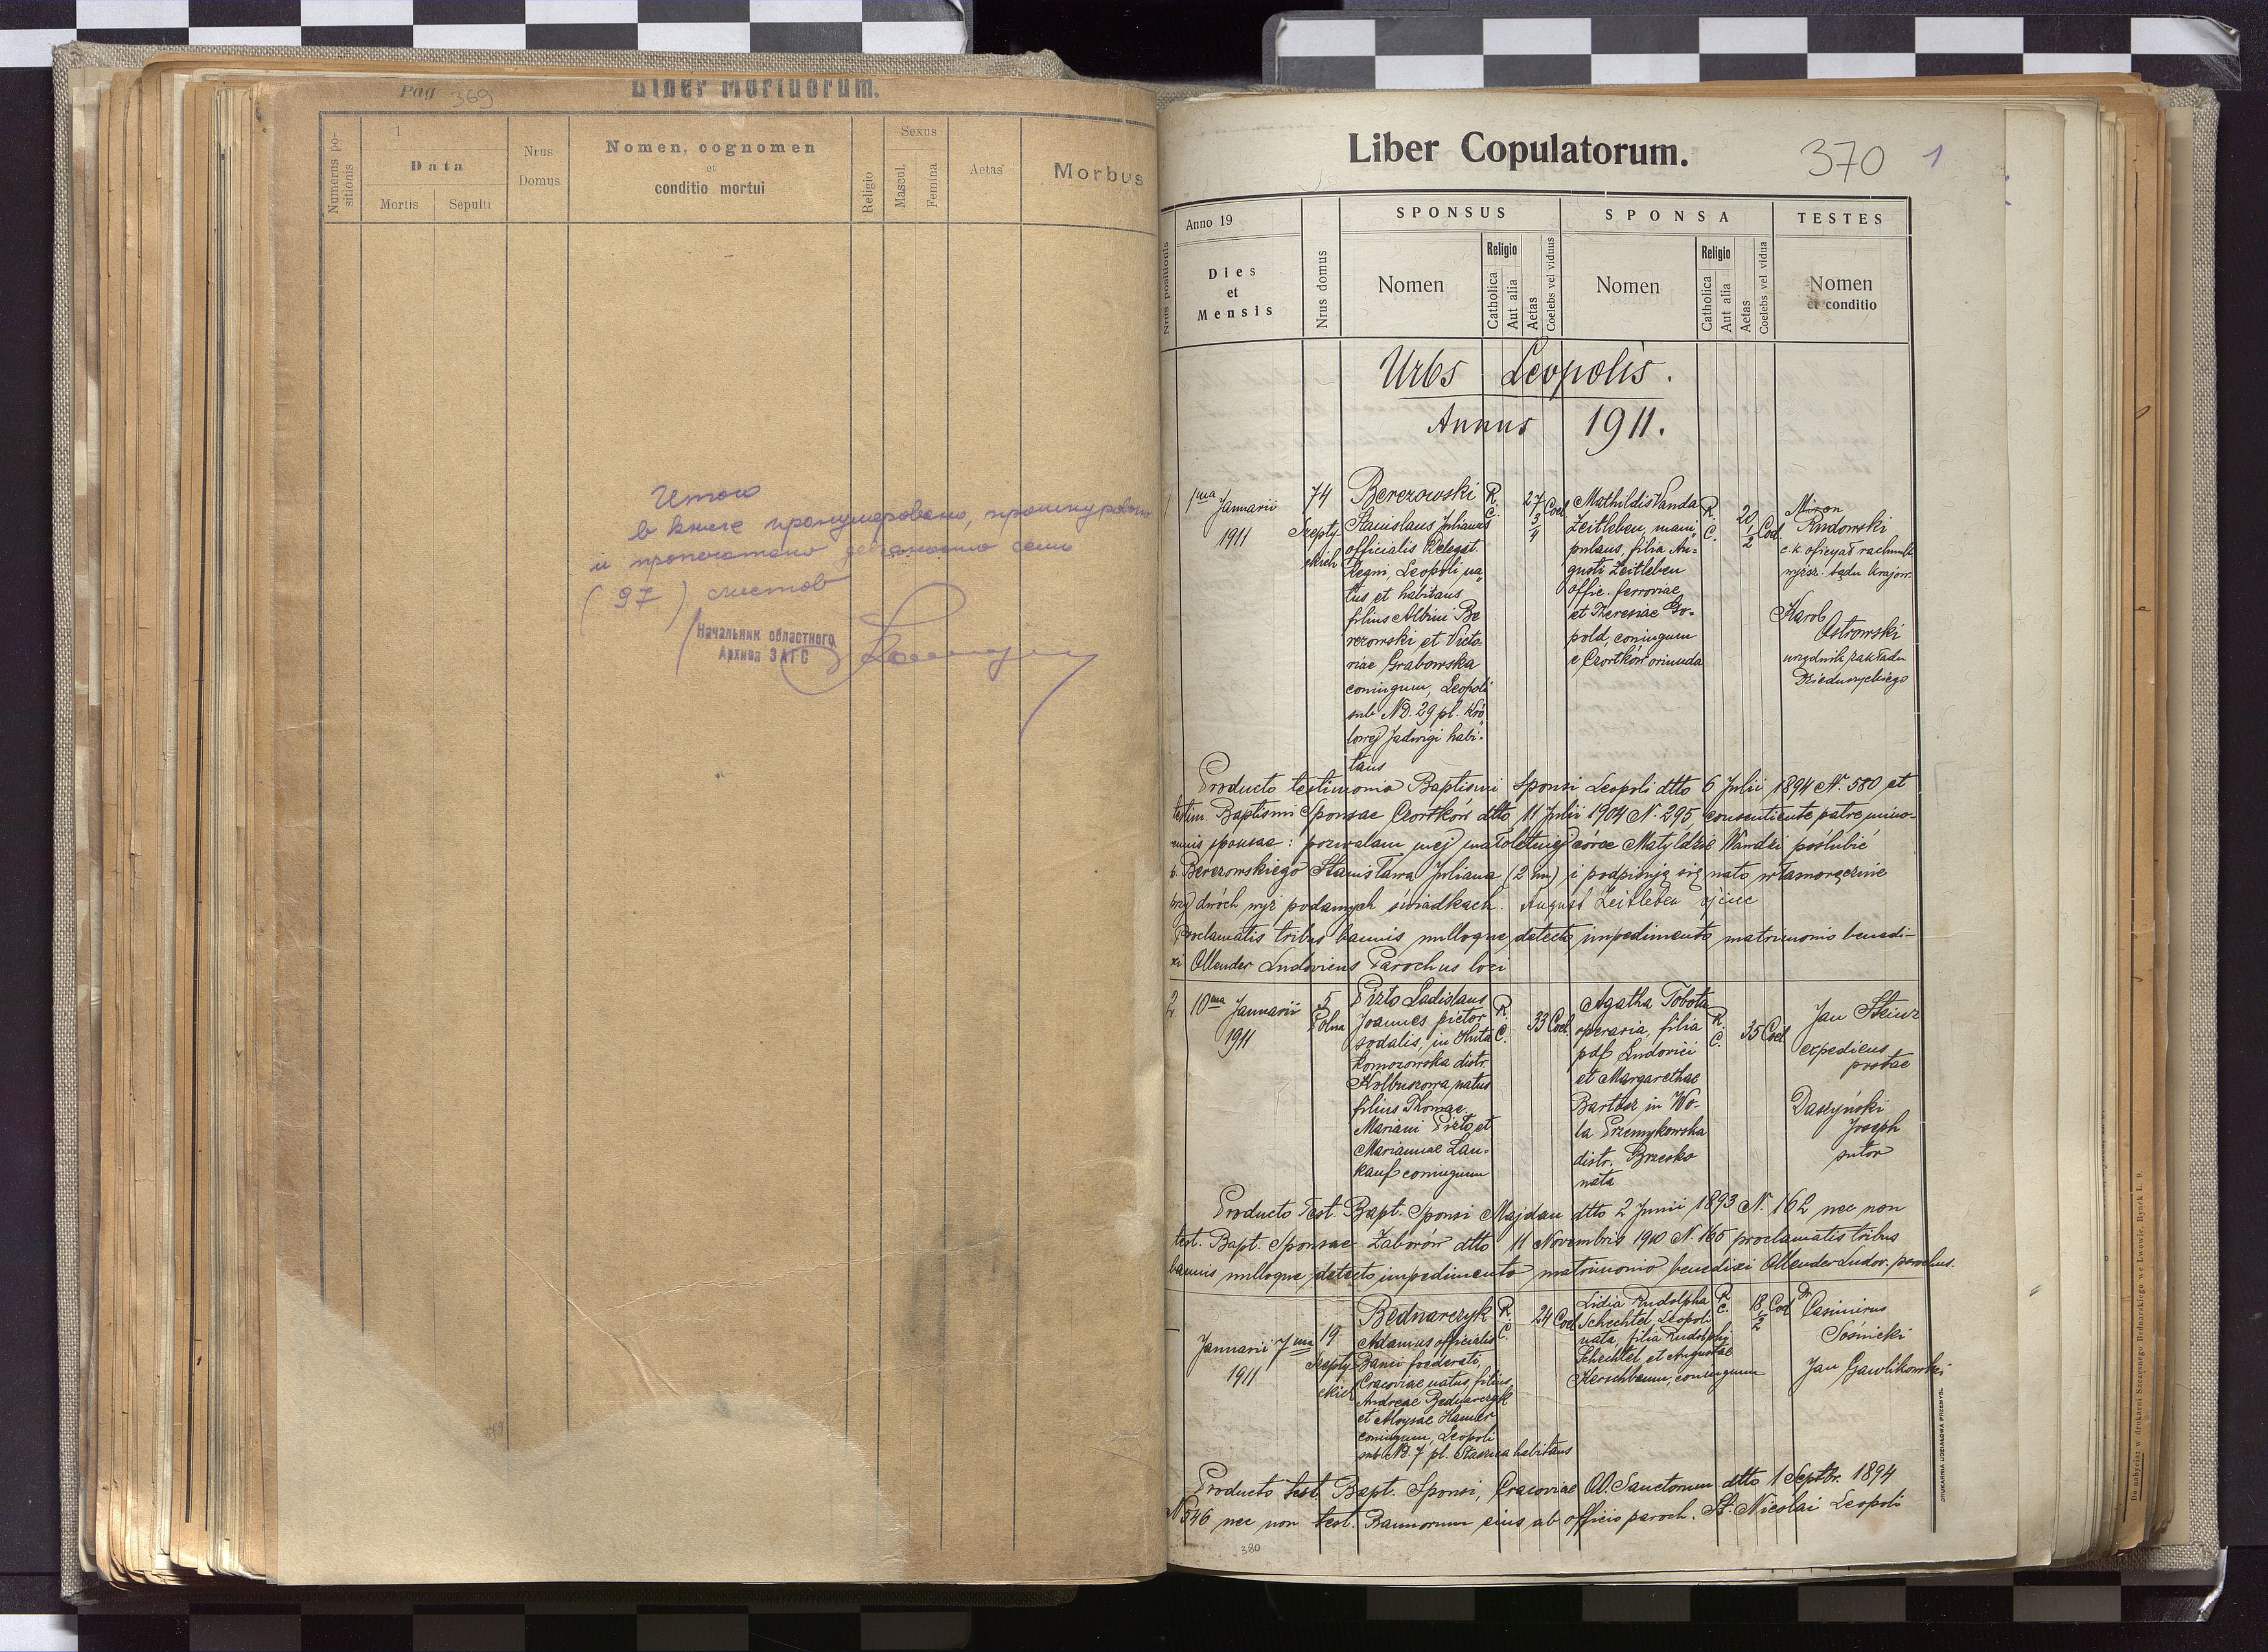 Pag 369
Liber Mortuorum.
Numerus po-
sitionis
1
Data
Mortis
Sepulti
Nrus
Domus
Nomen, cognomen
et
conditio mortui
Religio
Sexus
Mascul.
Femina
Aetas
Morbus
Итого
в книге пронумеровано, прошнуровано
и пропечатано девяносто семь
(97) листов
Начальник областного
Архива ЗАГС
Liber Copulatorum.
370 1
Nrus positionis
Anno 19
Dies
et
Mensis
Nrus domus
SPONSUS
Nomen
Religio
Catholica
Aut alia
Aetas
Coelebs vel viduus
SPONSA
Nomen
Religio
Catholica
Aut alia
Aetas
Coelebs vel vidua
TESTES
Nomen
et conditio
Urbs Leopolis.
Annus 1911.
1ma Januarii
1911
74
Szepty-
ckich
Berezowski
Stanislaus Julianus
officialis Delegat.
Regni, Leopoli na
tus et habitans
filius Albini Be
rezowski et Victo
riae Grabowska
coniugum, Leopoli
sub ND. 29 pl. Kró
lowej Jadwigi habi-
tans
R.
C.
27
3/4
Coel
Mathildis Vanda
Zeitleben, mani
pulans, filia Au-
gusti Zeitleben
offic. ferroviae
et Theresiae Go-
pold, coniugum
e Czortków oriunda
R.
C.
20
1/2
Coel.
Miron
Rudowski
c.k. oficyał rachunk
wyższ. sądu krajow.
Karol
Ostrowski
urzędnik zakładu
Dzieduszyckiego
Producto testimonio Baptismi Sponsi Leopoli dtto 6 Julii 1894 N. 580 et
testim. Baptismi Sponsae Czortków dtto 11 Julii 1904 N. 295 consentiente patre mino-
rennis sponsae: pozwalam mej małoletniej córce Matyldzie Wandzi poślubić
p. Berezowskiego Stanisława Juliana (2 im) i podpisuję się na to własnoręcznie
przy dwóch wyż podanych świadkach. August Zeitleben ojciec
Proclamatis tribus bannis nulloque detecto impedimento matrimonio benedi-
xi Ollender Ludovicus Parochus loci
2 10ma Januarii
1911
5
Polna
Pizto Ladislaus
Joannes pictor
sodalis, in Huta
komorowska distr.
Kolbuszowa natus
filius Thomae
Mariani Pizto et
Mariannae Lau-
kauf coniugum
R.
C.
33 Coel.
Agatha Tobota
operaria, filia
pdf Ludovici
et Margarethae
Bartosz in Wo-
la Przemykowska
distr. Brzesko
nata
R.
C.
35 Coel
Jan Steinz
expediens
postae
Daszyński
Joseph
sutor
Producto Test. Bapt. Sponsi Majdan dtto 2 Junii 1893 N. 162 nec non
test. Bapt. Sponsae Zaborów dtto 11 Novembris 1910 N. 165 proclamatis tribus
bannis nulloque detecto impedimento matrimonio benedixi Ollender Ludov. parochus.
Januarii 7ma
1911
19
Szepty
ckich
Bednarczyk
Adamus officialis
Banci foederati,
Cracoviae natus filius
Andreae Bednarczyk
et Aloysae Hamer
coniugum, Leopoli
sub ND. 7 pl. Staszica habitans
R.
C.
24 Coel
Lidia Rudolpha
Schechtel Leopoli
nata, filia Rudolphi
Schechtel et Augustae
Kerschbaum, coniugum
R.
C.
18
1/2
Coel
Dr Casimirus
Sośnicki
Jan Gawlikowski
Producto test. Bapt. Sponsi, Cracoviae OO. Sanctorum dtto 1 Septbr. 1894
N 546 nec non test. Bannorum eius ab officio paroch. St. Nicolai Leopoli
380
DRUKARNIA UDZIAŁOWA PRZEMYŚL.
Do nabycia w drukarni Szczęsnego Bednarskiego we Lwowie, Rynek L. 9.